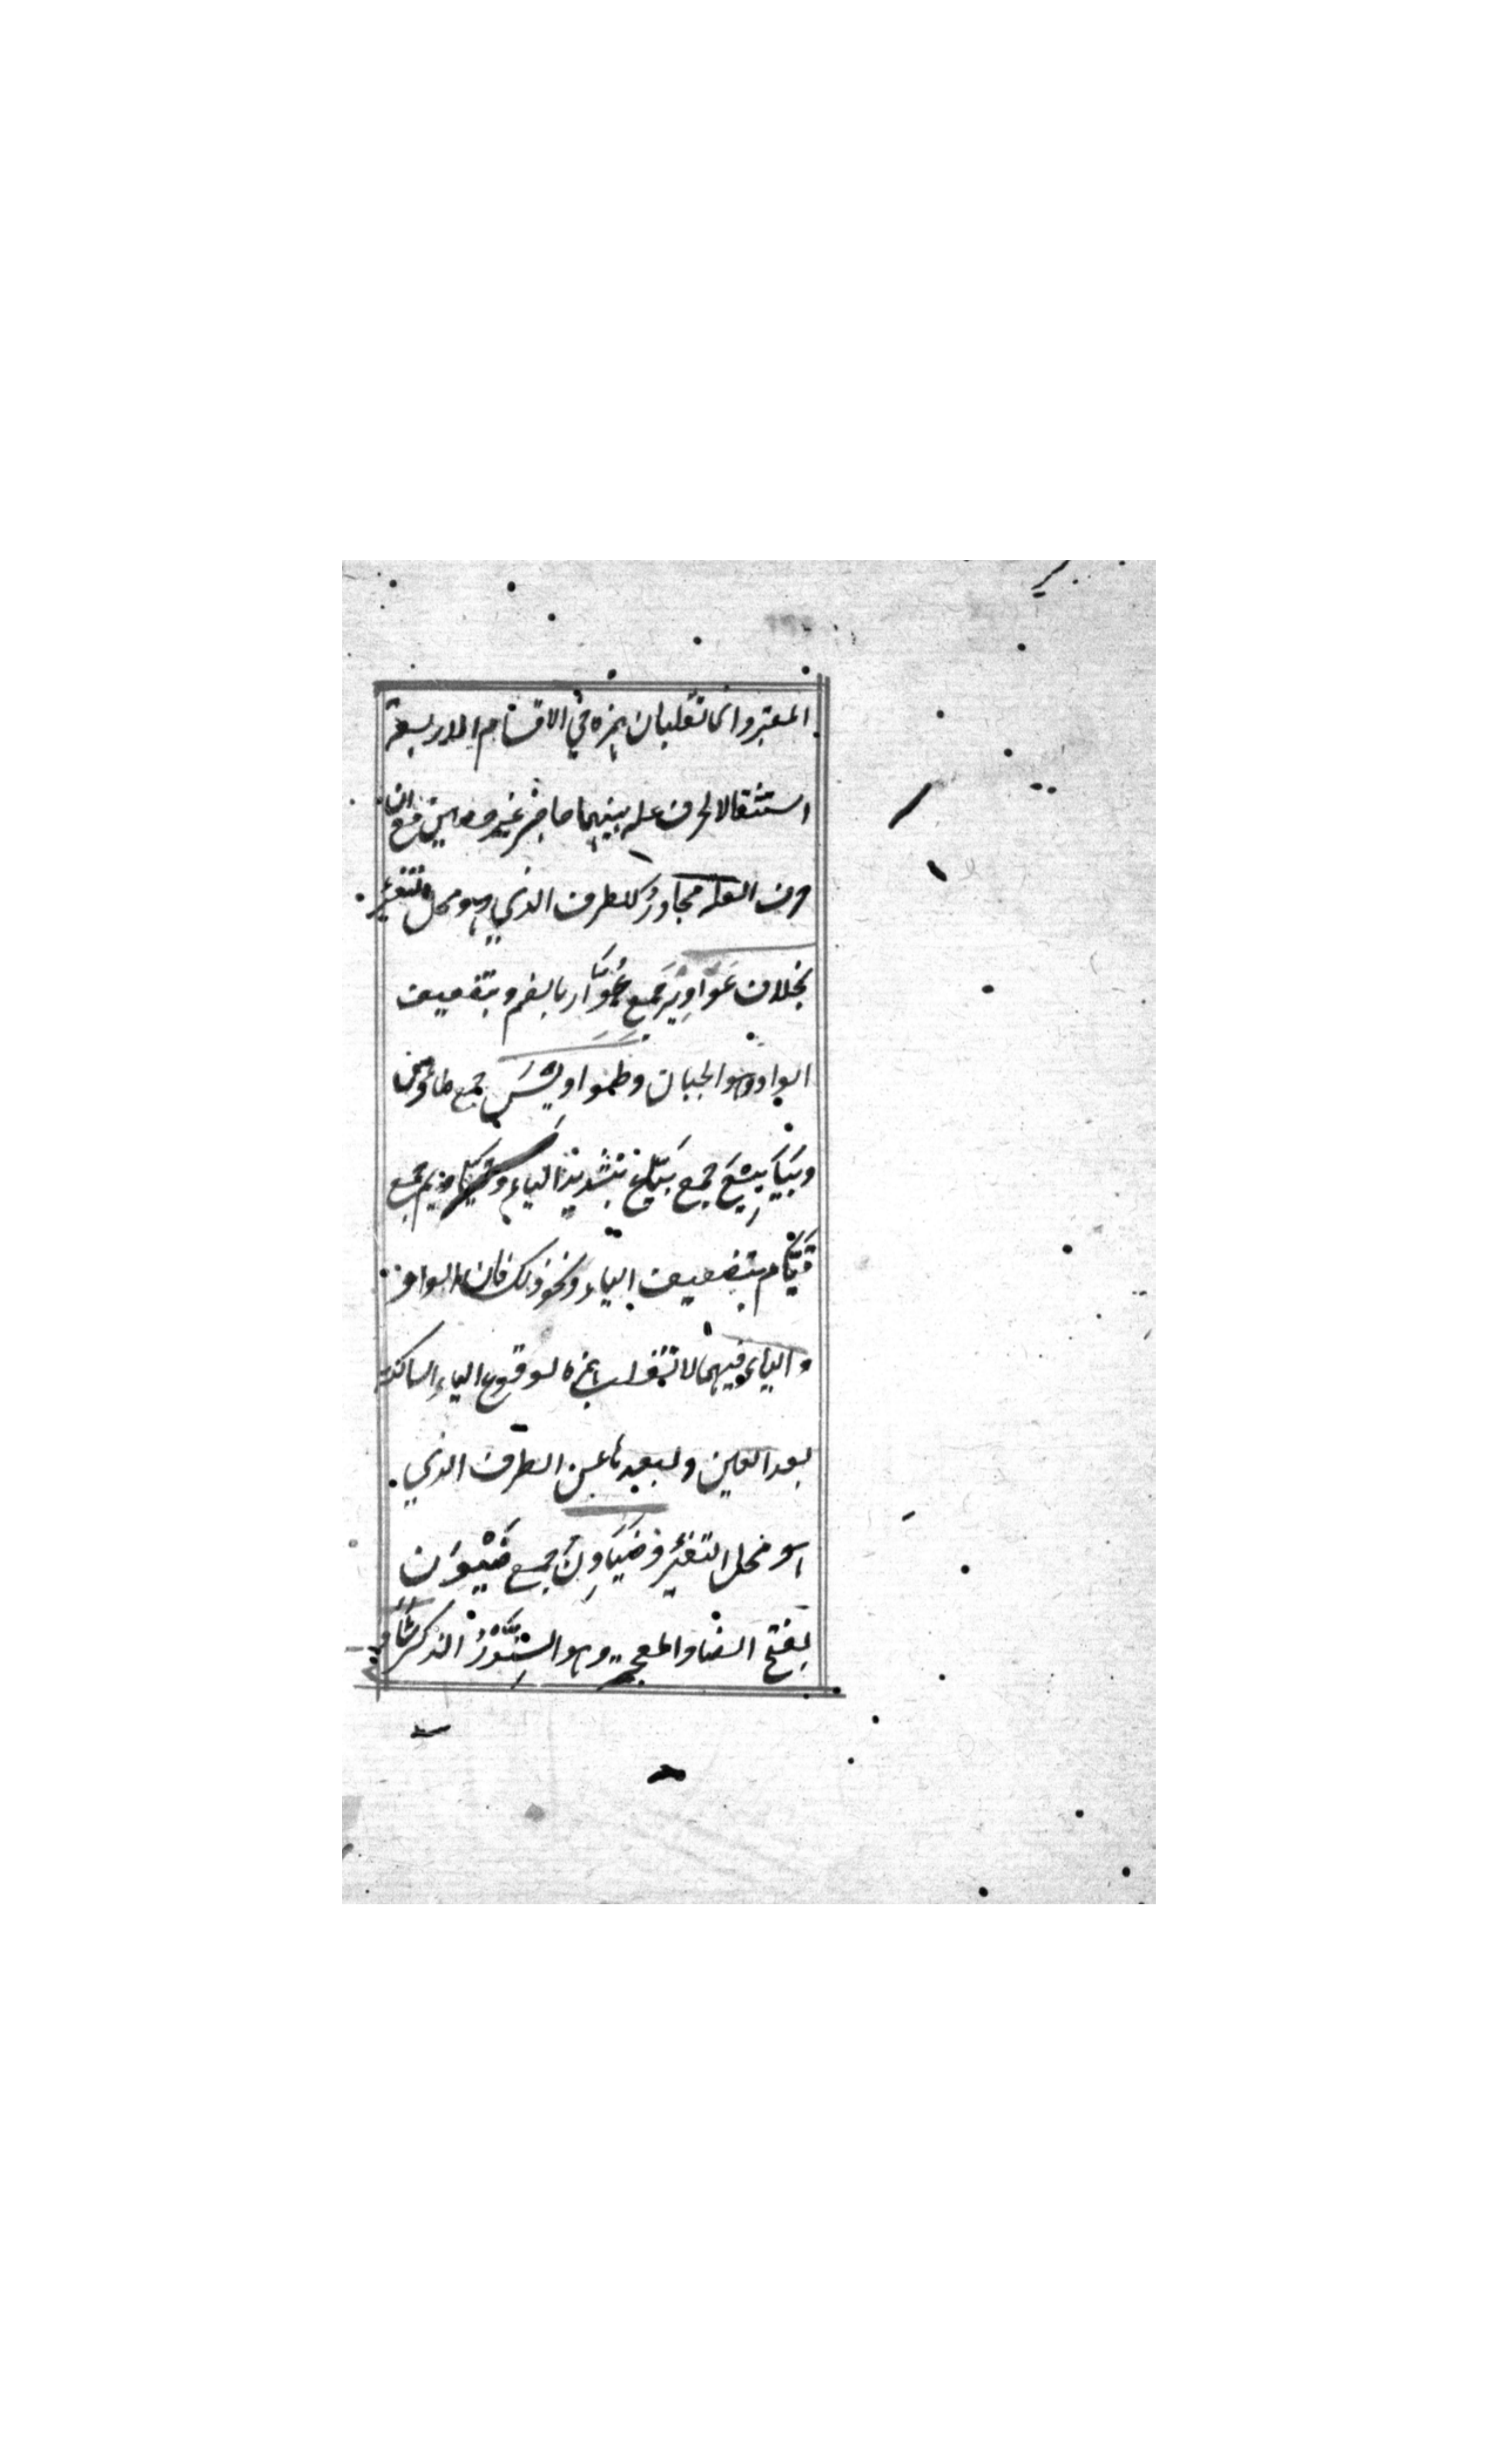 المعتبر وانما تقلبان همزة في الاقسام الاربعة
استثقالا لحرفي علة بينهما حاجز غير حصين مع ان
حرف العلة مجاورٌ للطرف الذي هو محل التغير
بخلاف عَوَاوِيرَ جمع عُوَّار بالضم و بتضعيف
الواو وهو الجبان وطواويسَ جمع طاؤس
وبَيَايِيعَ جمع بَيَّاع بتشديد الياء وقياييم جمع
قَيَّام بتضعيف الياء ونحو ذلك فان الواو
والياء فيهما لا تقلب همزة لوقوع الياء الساكنة
بعد العين ولبعدها عن الطرف الذي
هو محل التغير وضَيَاوِنُ جمع ضَيْوَن
بفتح الضاد المعجمة وهو السِنَّوْرُ الذكر شاذٌ